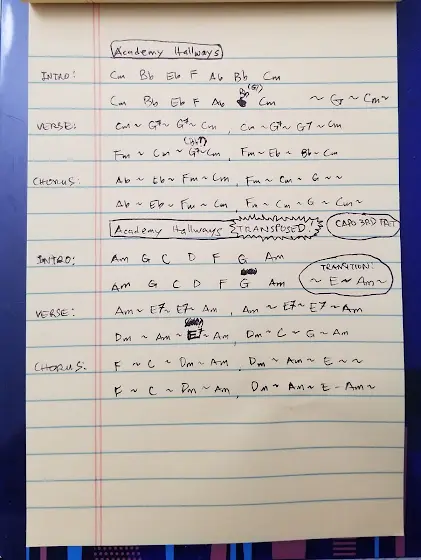 Academy Hallways
INTRO: Cm Bb Eb F Ab Bb Cm
(G)
Cm Bb Eb F Ab Bb Cm ~ G ~ Cm~
VERSE: Cm ~ G7 ~ G7 ~ Cm, Cm ~ G7 ~ G7 ~ Cm
(Bb7)
Fm ~ Cm ~ G7 ~ Cm, Fm ~ Eb ~ Bb ~ Cm
CHORUS: Ab ~ Eb ~ Fm ~ Cm, Fm ~ Cm ~ G ~ ~
Ab ~ Eb ~ Fm ~ Cm, Fm ~ Cm ~ G ~ Cm ~
Academy Hallways TRANSPOSED! CAPO 3RD FRET
INTRO: Am G C D F G Am
TRANSITION:
Am G C D F G Am ~ E ~ Am ~
VERSE: Am ~ E7 ~ E7 ~ Am, Am ~ E7 ~ E7 ~ Am
Dm ~ Am ~ E7 ~ Am, Dm ~ C ~ G ~ Am
CHORUS: F ~ C ~ Dm ~ Am, Dm ~ Am ~ E ~ ~
F ~ C ~ Dm ~ Am, Dm ~ Am ~ E - Am ~